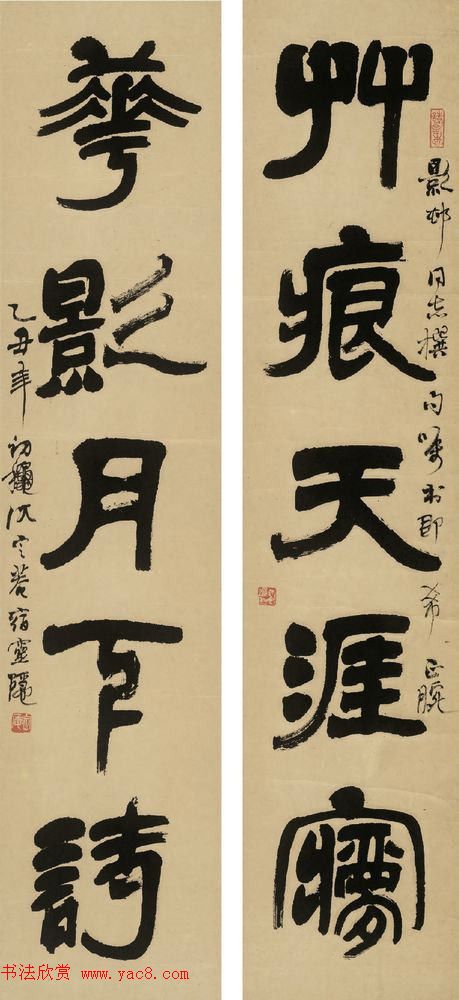 艸痕天涯㝱
影邨同志撰句嘱書即希正腕
華影月下詩
乙丑年初龝沈定菴宿靈隱
书法欣赏 www.yac8.com